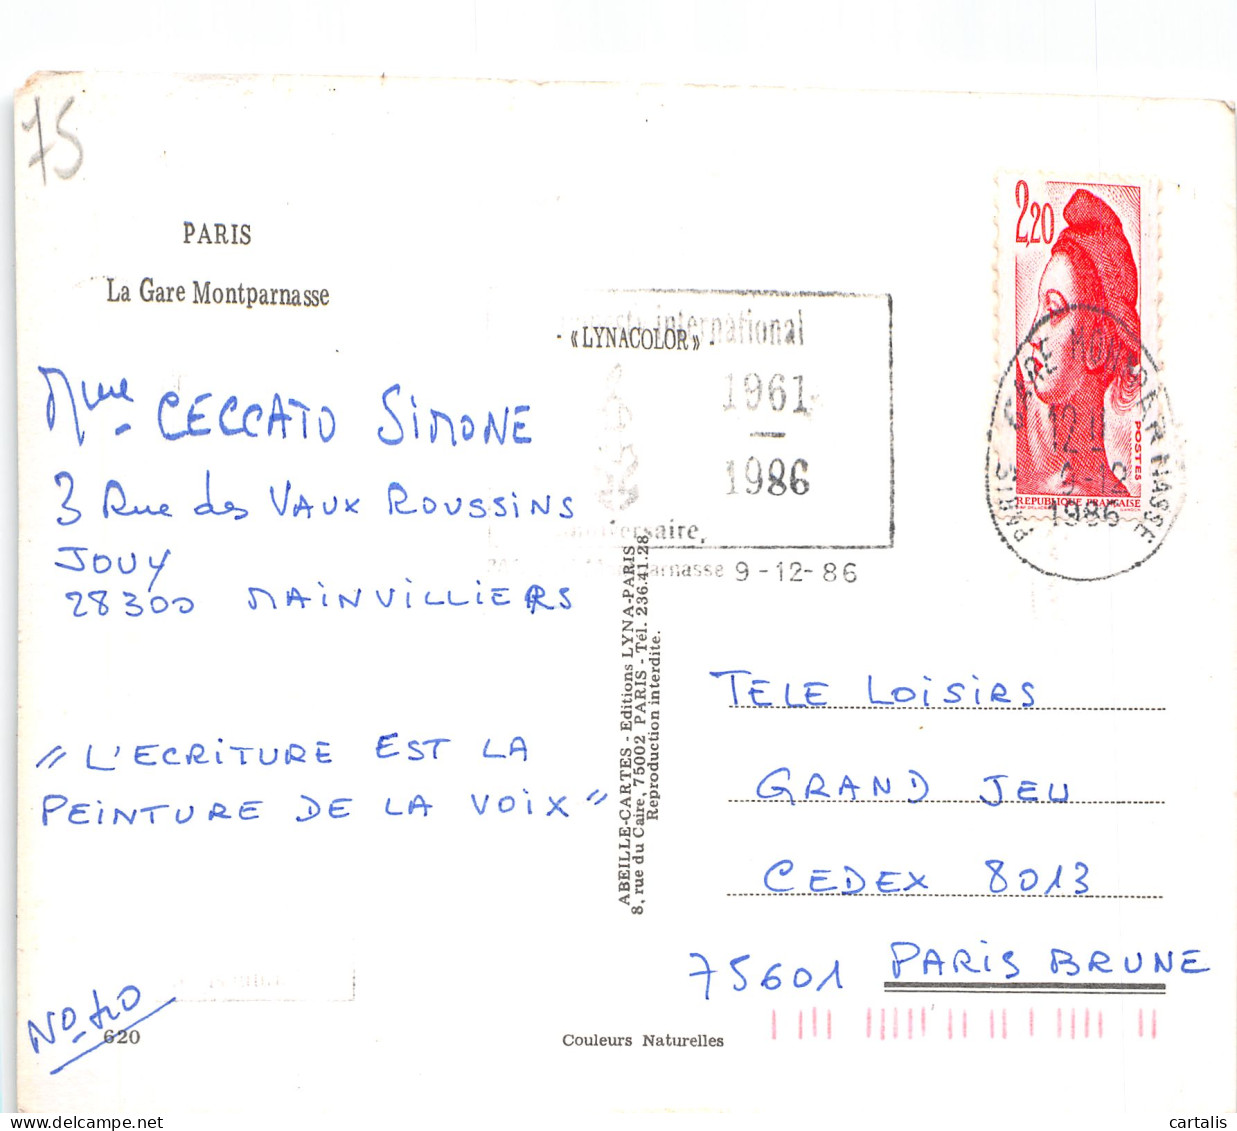 75
PARIS
La Gare Montparnasse
« LYNACOLOR »
international
1961
-
1986
9-12-86
2,20
POSTES
REPUBLIQUE FRANÇAISE
PARIS GARE MONTPARNASSE
9-12
1986
Mme CECCATO SIMONE
3 Rue des VAUX ROUSSINS
JOUY
28300 MAINVILLIERS
" L'ECRITURE EST LA
PEINTURE DE LA VOIX "
ABEILLE-CARTES - Editions LYNA-PARIS
8, rue du Caire, 75002 PARIS - Tél. 236.41.28
Reproduction interdite.
TELE LOISIRS
GRAND JEU
CEDEX 8013
75601 PARIS BRUNE
No 40
620
Couleurs Naturelles
cartalis